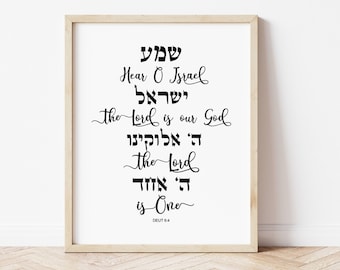 שמע
Hear O Israel
ישראל
the Lord is our God
ה׳ אלוקינו
the Lord
ה׳ אחד
is One
DEUT 6:4